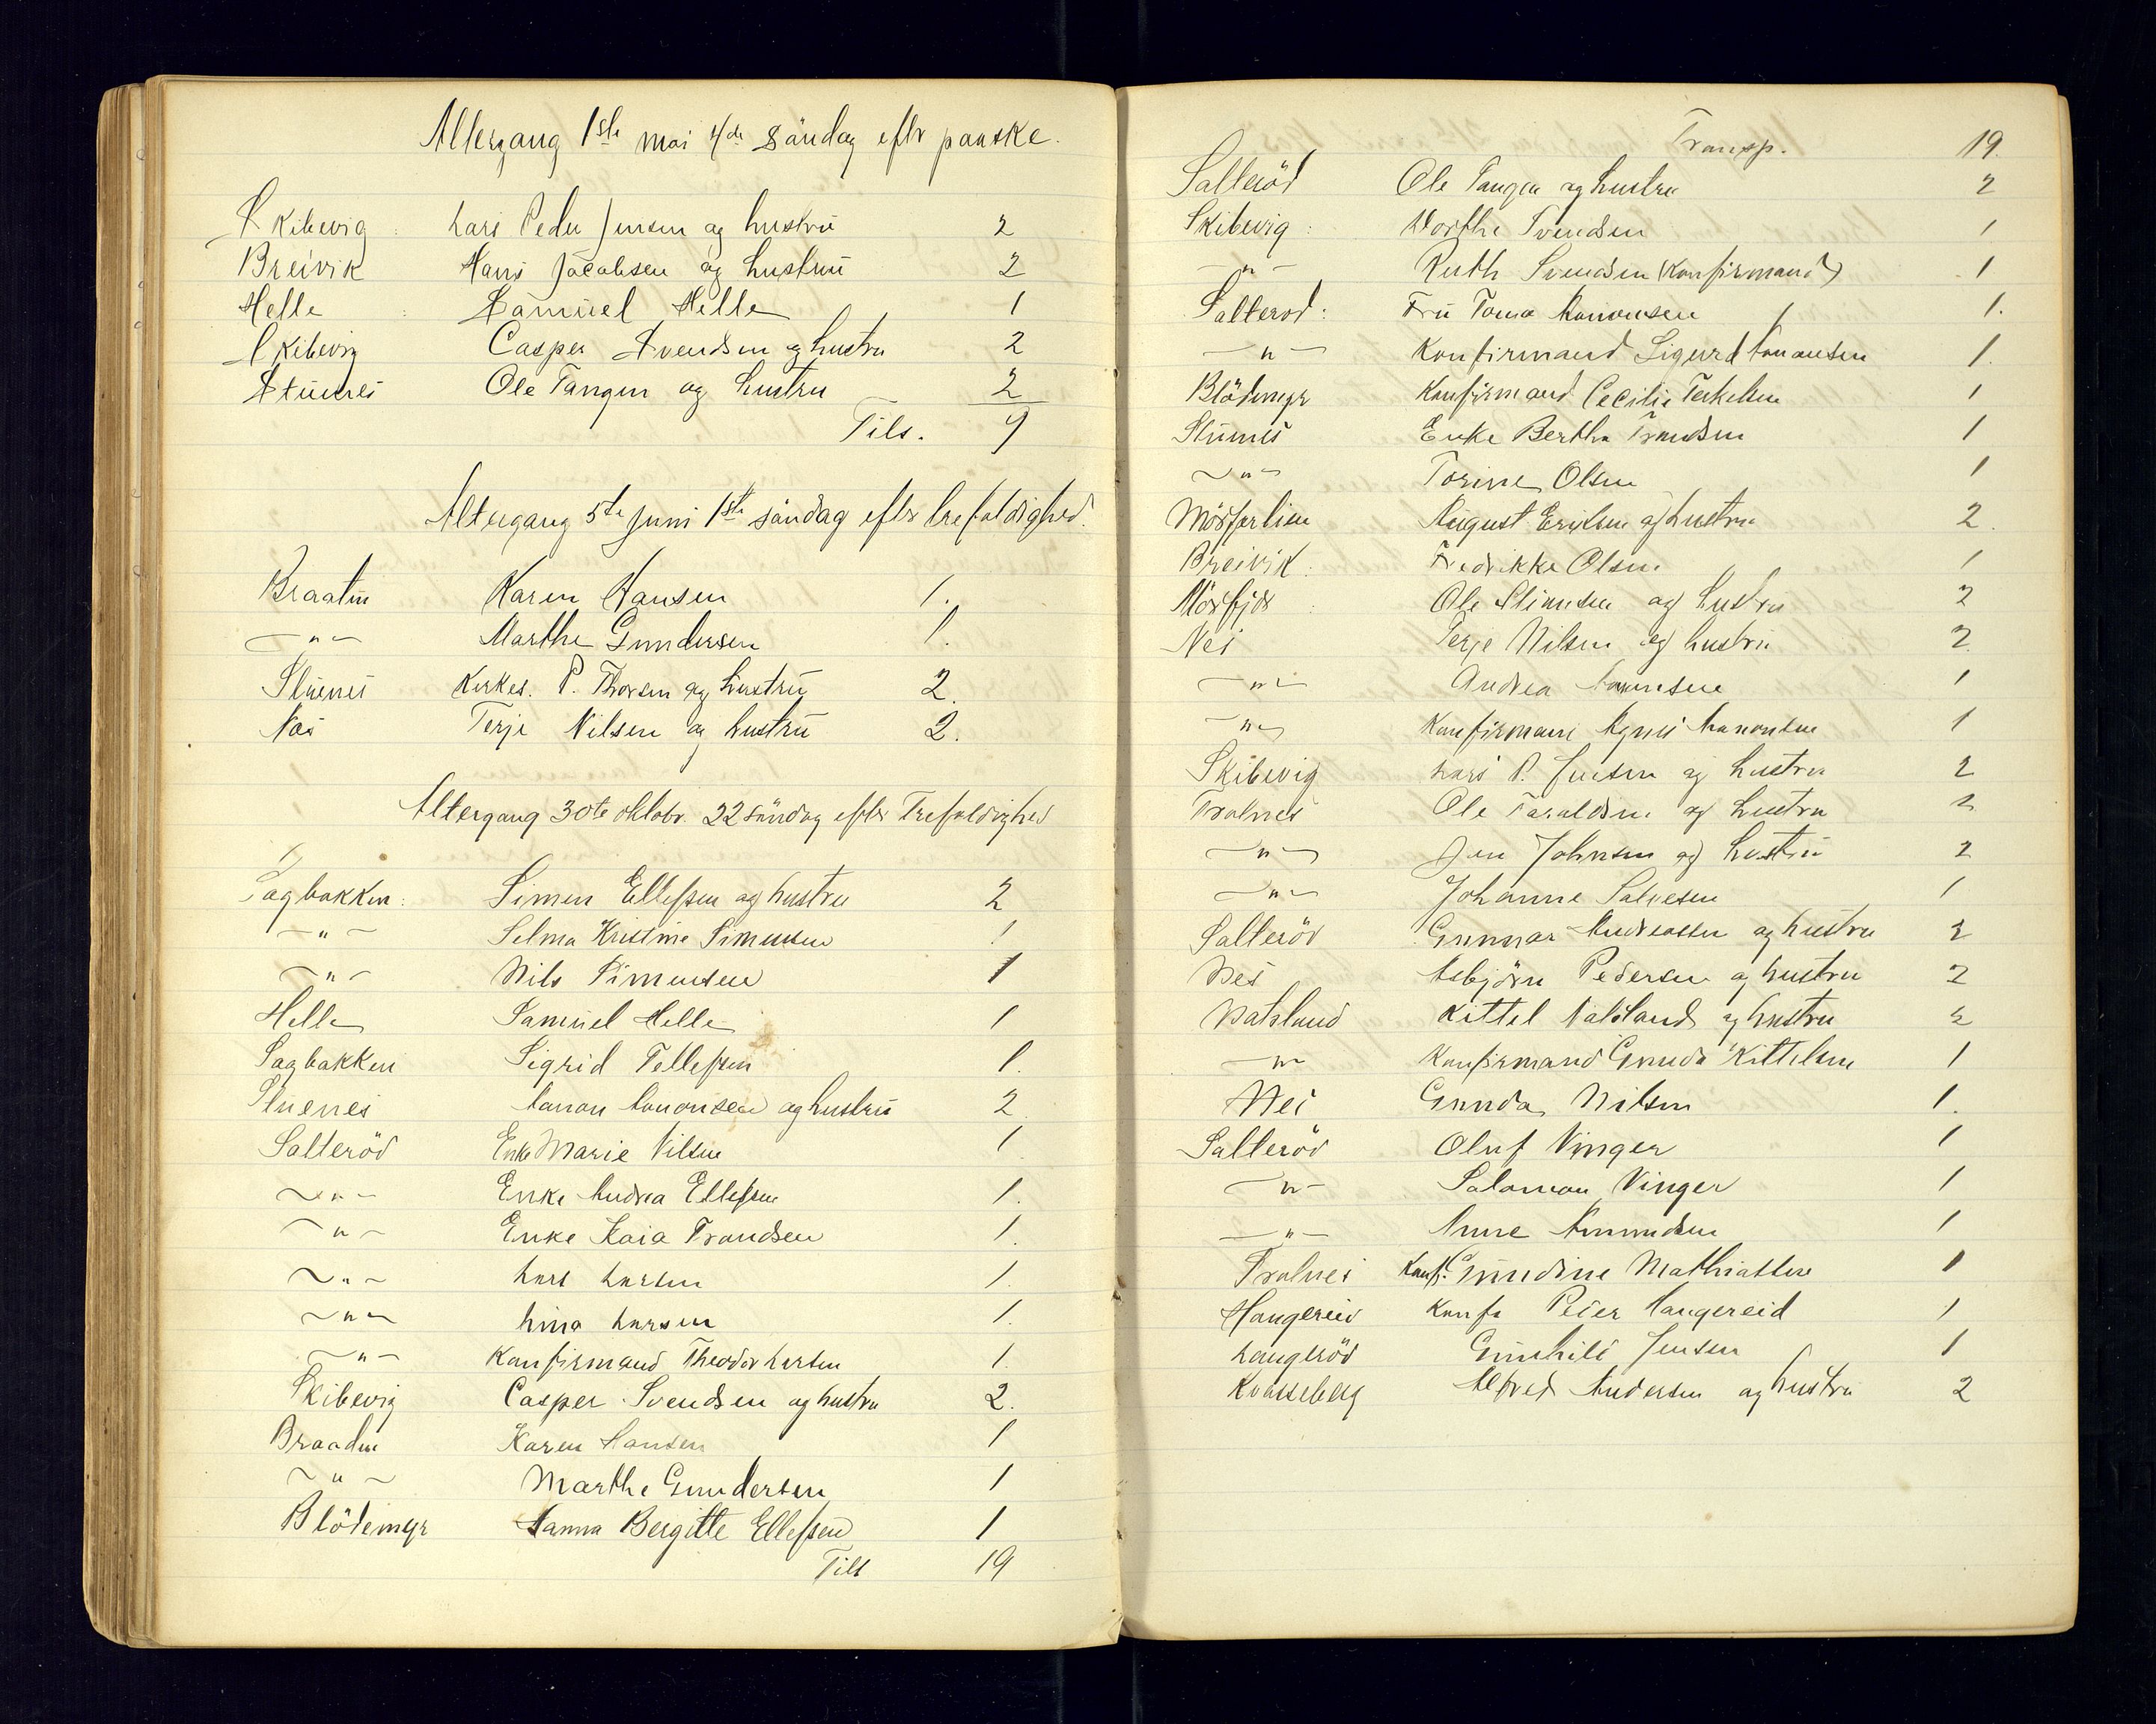 Altergang 1ste mai 4de söndag efter paaske.
Skibevig : Lars Peder Jensen og hustru 2
Breivik Hans Jacobsen og hustru 2
Helle : Samuel Helle 1
Skibevig Casper Svendsen og hustru 2
Stuenes Ole Tangen og hustru 2
Tils. 9
Altergang 5te juni 1ste söndag efter trefoldighed.
Braaten Karen Hansen 1.
—"— Marthe Gundersen 1.
Stuenes Kirkes. P. Thorsen og hustru 2.
Nes Terje Nilsen og hustru 2.
Altergang 30te oktobr. 22 söndag efter Trefoldighed
Sagbakken : Simen Ellefsen og hustru 2
—"— Selma Kristine Simensen 1
—"— Nils Simensen 1
Helle Samuel Helle 1
Sagbakken Sigrid Tellefsen 1.
Stuenes Aanon Aanonsen og hustru 2
Salteröd Enke Marie Nilsen 1
—"— Enke Andrea Ellefsen 1.
—"— Enke Kaia Trondsen 1.
—"— Lars Larsen 1.
—"— Lina Larsen 1.
—"— Konfirmand Theodor Larsen 1.
Skibevig Casper Svendsen og hustru 2.
Braaden Karen Hansen 1
—"— Marthe Gundersen 1
Blödemyr Hanna Bergitte Ellefsen 1
Tils 19
Transp. 19.
Salteröd Ole Tangen og hustru 2
Skibevig : Dorthe Svendsen 1
—"— Ruth Svendsen (Konfirmand) 1
Salterod : Fru Toma Aanonsen 1.
—"— Konfirmand Sigurd Aanonsen 1.
Blödemyr Konfirmand Cecilie Terkelsen 1
Stuenes Enke Bertha Trondsen 1
—"— Torine Olsen 1
Mörfjerlien August Eriksen og hustru 2.
Breivik : Fredrikke Olsen 1
Mörfjær : Ole Simensen og hustru 2
Nes Terje Nilsen og hustru 2
—"— Andrea Aanonsen 1
—"— Konfirmand Agnes Aanonsen 1
Skibevig Lars P. Jensen og hustru 2
Tralnes Ole Taraldsen og hustru 2
—"— Jens Johnsen og hustru 2
—"— Johanne Salvesen 1
Salteröd Gunnar Andreassen og hustru 2
Nes Asbjörn Pedersen og hustru 2
Natsland Kittel Natsland og hustru 2
—"— Konfirmand Gunda Kittelsen 1
Nes Gunda Nilsen 1.
Salteröd Oluf Vinger 1
—"— Salomon Vinger 1
—"— Anne Amundsen 1
Tralnes Konf. Gundine Mathiassen 1
Haugereid Konf. Peder Haugereid 1
Langeröd Gunhild Jensen 1
Kvasseberg Alfred Andersen og hustru 2